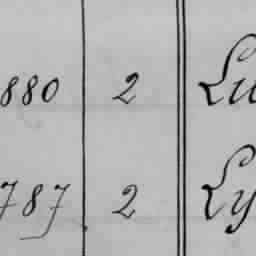 880 2 Lu
787 2 Ly